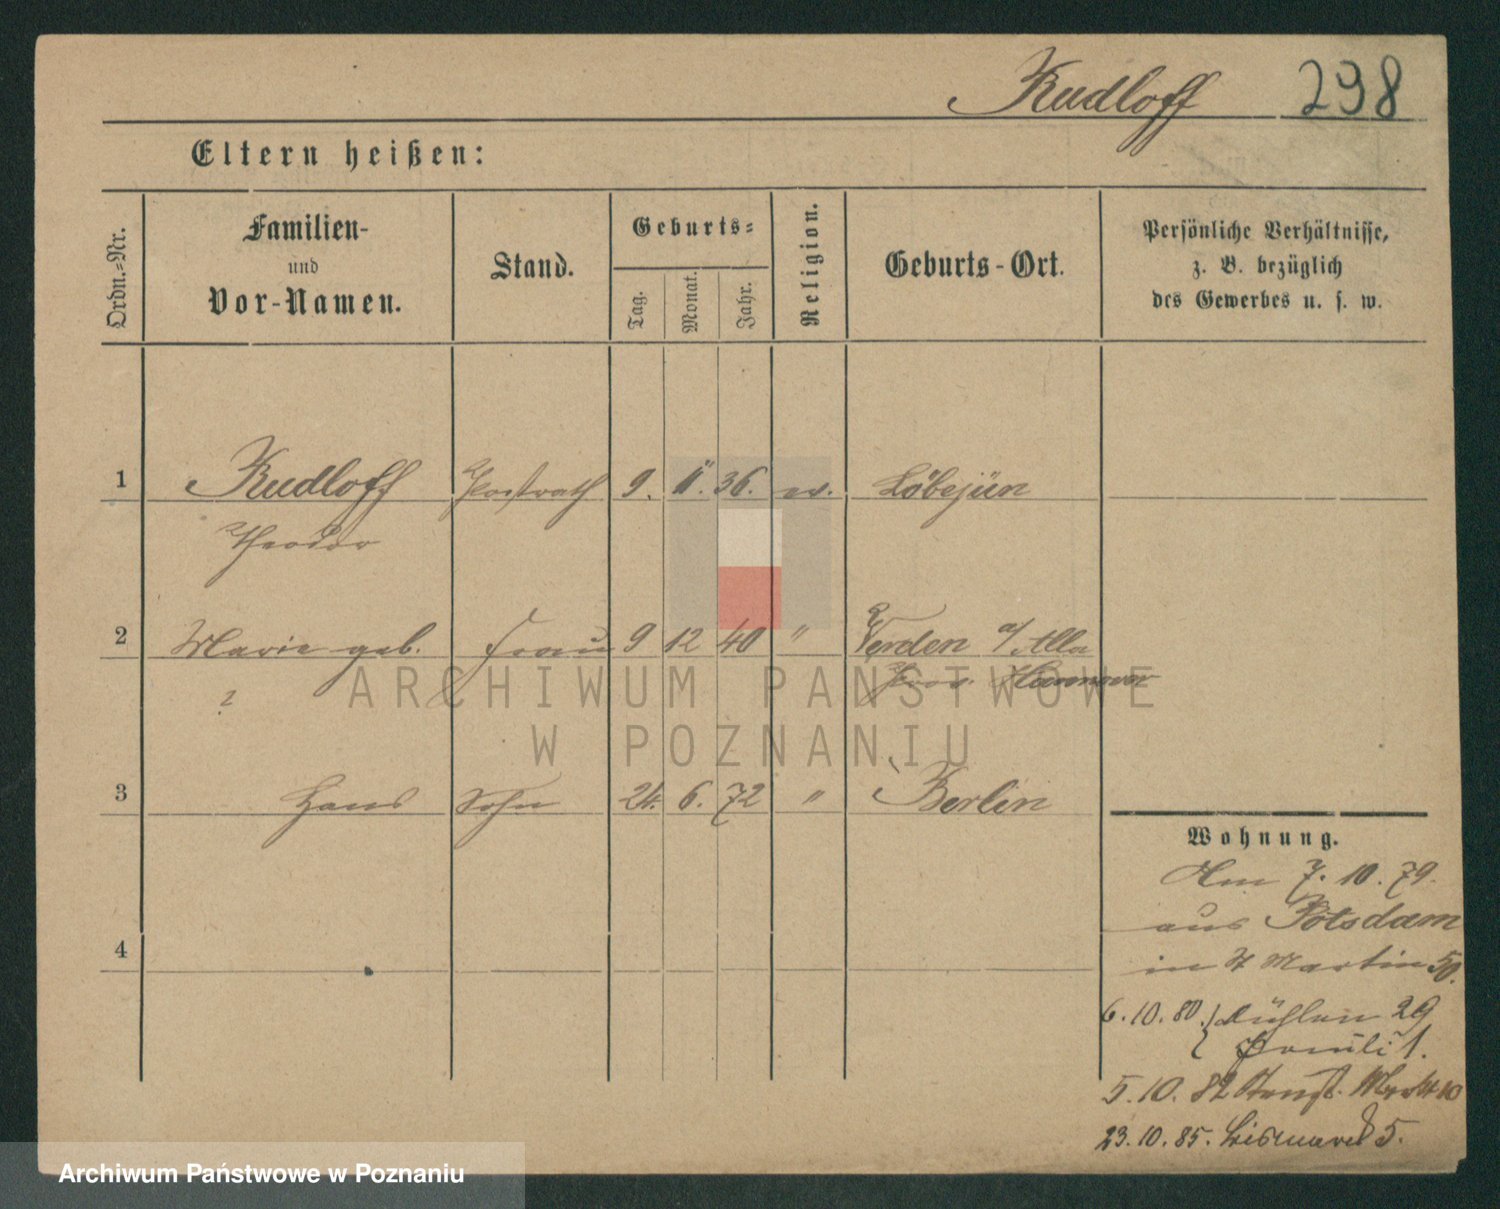 Rudloff 298
Eltern heißen:
Ordn.-Nr.
Familien-
und
Vor-Namen.
Stand.
Geburts-
Tag.
Monat.
Jahr.
Religion.
Geburts-Ort.
Persönliche Verhältnisse,
z. B. bezüglich
des Gewerbes u. s. w.
1 Rudloff Postrath 9. 11. 36. ev. Löbejün
Theodor
2 Marie geb. Frau 9 12 40 " Verden a/ Alla
? Prov. Hannover
ARCHIWUM PAŃSTWOWE
W POZNANIU
3 Hans Sohn 24. 6. 72 " Berlin
Wohnung.
Am 7. 10. 79.
aus Potsdam
in St Martin 50.
4
6. 10. 80. Mühlen 29
Pauli 1.
5. 10. 82 10
23. 10. 85. Bismarck 5.
Archiwum Państwowe w Poznaniu